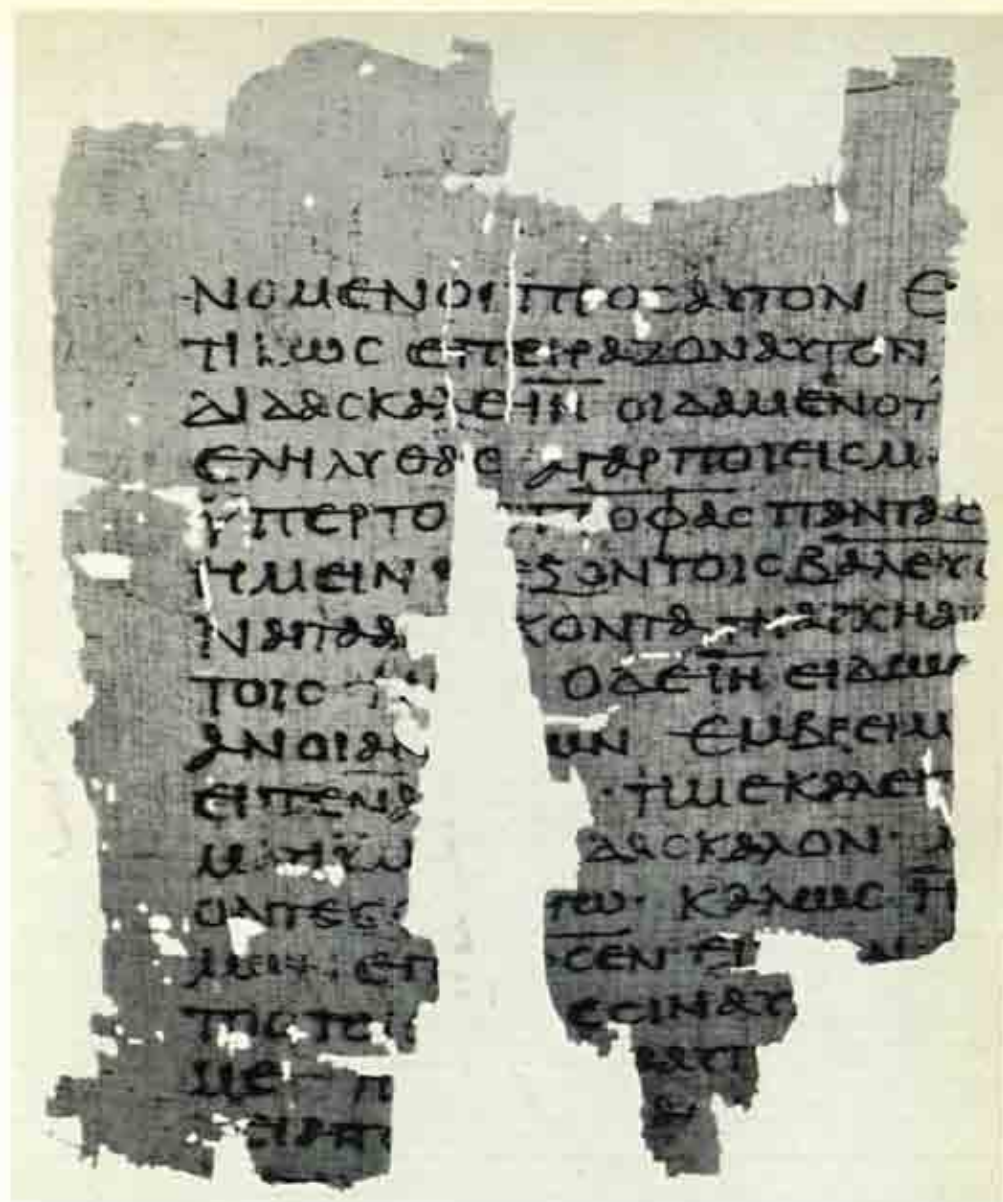 ΝΟΜΕΝΟΙ ΠΡΟϹΑΥΤΟΝ Ε
ΤΙΚΩϹ ΕΠΕΙΡΑΖΟΝΑΥΤΟΝ
ΔΙΔΑϹΚΑΛΕΙΗ ΟΙΔΑΜΕΝΟΤ
ΕΛΗΛΥΘΑϹ ΑΓΑΡΠΟΙΕΙϹΜ
ΥΠΕΡΤΟ ΠΡΟΦΑϹ ΠΑΝΤΑϹ
ΗΜΕΙΝ ΕΞΟΝΤΟΙϹΒΑΛΕΥϹ
ΝΑΙΤΑΑΝ ΚΟΝΤΑ ΤΗΑΡΧΗΑΠ
ΤΟΙϹ ΗΜ ΟΔΕΙΗ ΕΙΔΩϹ
ΑΝΟΙΑΝ ΩΝ ΕΜΒΡΕΙΜ
ΕΙΠΕΝΑ ΤΙΜΕΚΑΛΕΙΤ
ΜΑΤΙΥΜ ΔΑϹΚΑΛΟΝ Μ
ΟΝΤΕϹΟ ΓΩ· ΚΑΛΩϹ Η
ΜΩΝ ΕΠ ϹΕΝ ΕΙ
ΕϹΙΝΑΥ
ΜΕ Η ΑΥΤ